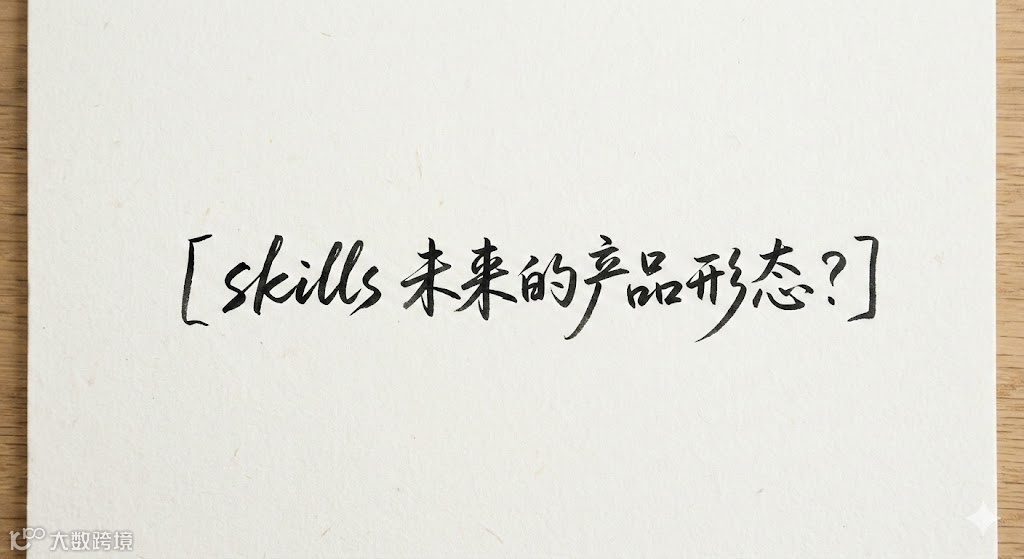 [skills 未来的产品形态?]
大数跨境